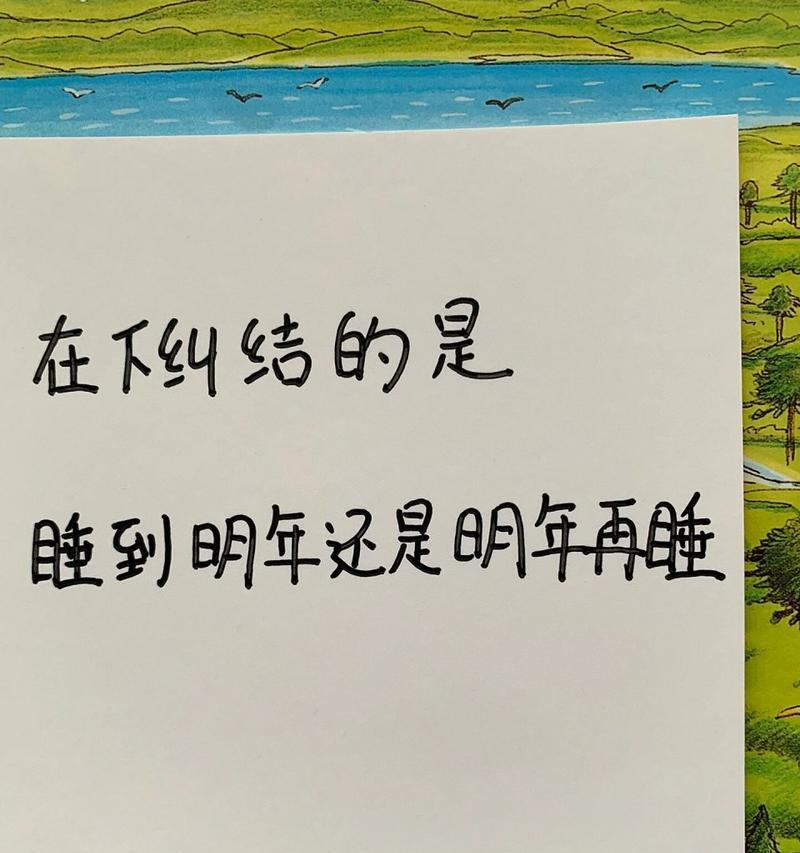 在下纠结的是
睡到明年还是明年再睡